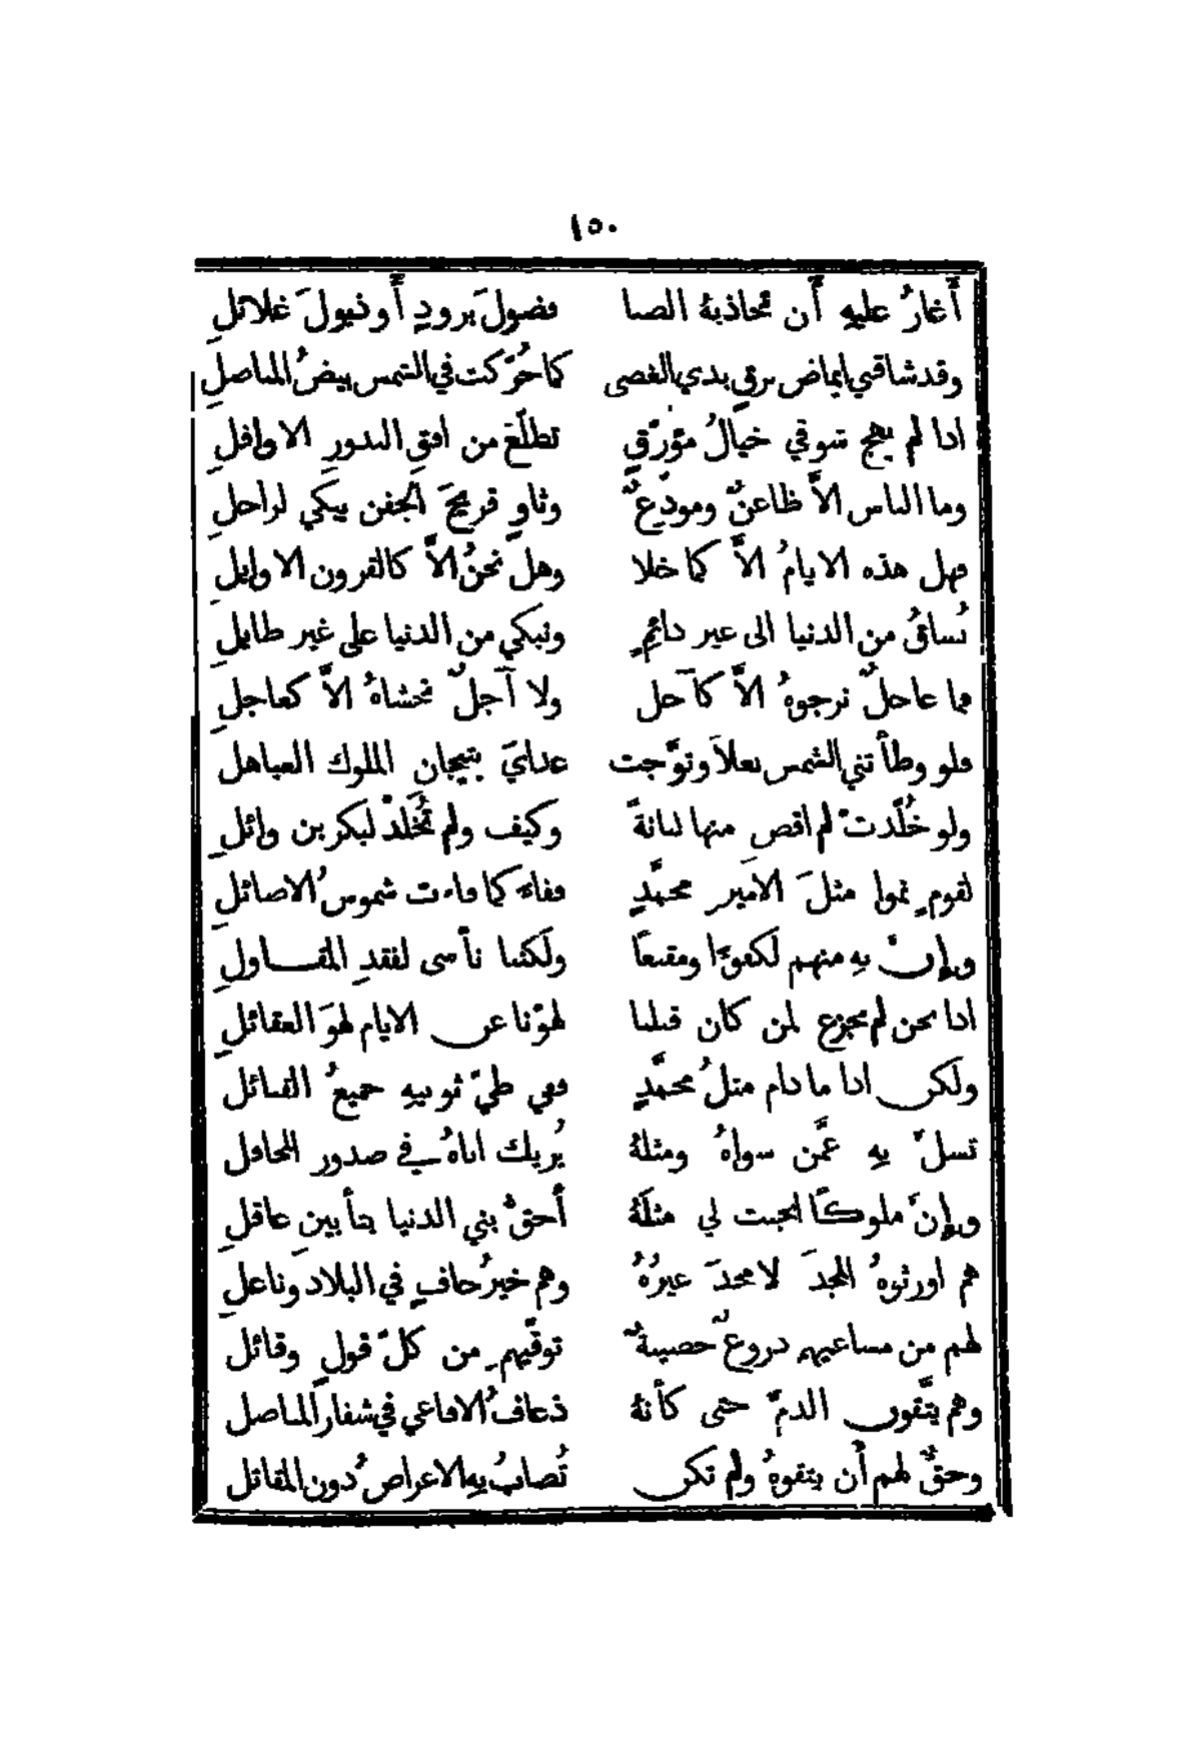 ١٥٠
أَغارُ عليهِ أَن تجاذبهُ الصبا فضولَ برودٍ أَو ذيولَ غلائلِ
وقد شاقني ايماض برقٍ بذي الغضى كما حُرّكت في الشمس بيضُ المناصلِ
اذا لم يهج شوقي خيالُ مؤرّقٍ تطلّعَ من افقِ البدورِ الاوافلِ
وما الناس الاَّ ظاعنٌ ومودّعٌ وثاوٍ قريحَ الجفن يبكي لراحلِ
فهل هذه الايامُ الاَّ كما خلا وهل نحنُ الاَّ كالقرون الاوايلِ
نُساقُ من الدنيا الى غير دائمٍ ونبكي من الدنيا على غير طايلِ
فما عاجلٌ نرجوهُ الاَّ كآجل ولا آجلٌ نخشاهُ الاَّ كعاجلِ
فلو وطأتني الشمس نعلاً وتوَّجت عدايَ بتيجان الملوك العباهل
ولو خُلّدت لم اقضِ منها لبانةً وكيف ولم تُخَلد لبكر بن وائلِ
لقومٍ نموا مثلَ الاميرِ محمَّدٍ ففاءَ كما فاءت شموسُ الاصائلِ
وإِنّ بهِ منهم لكفوءًا ومقنعًا ولكننا نأسى لفقدِ المقـاولِ
اذا نحن لم نجزع لمن كان قبلنا لهوّنا عن الايام لهوَ العقائلِ
ولكن اذا ما دام مثلُ محمَّدٍ ففي طيّ ثوبيهِ جميعُ القبائل
تسلّ بهِ عمَّن سواهُ ومثلهُ يُريك اباهُ في صدور المحافل
وإِنَّ ملوكًا انجبت لي مثلَهُ أَحقُّ بني الدنيا بتأبين عاقلِ
هم اورثوهُ المجدَ لا مجدَ غيرُهُ وهم خيرُ حافٍ في البلاد وناعلِ
لهم من مساعيهم دروعٌ حصينةٌ توقّيهمِ من كلّ قولٍ وقائل
وهم يتَّقون الذمّ حتى كأنهُ ذعافُ الافاعي في شفار المناصل
وحقٌّ لهم أَن يتقوهُ ولم تكن تُصابُ بهِ الاعراضُ دون المقاتل